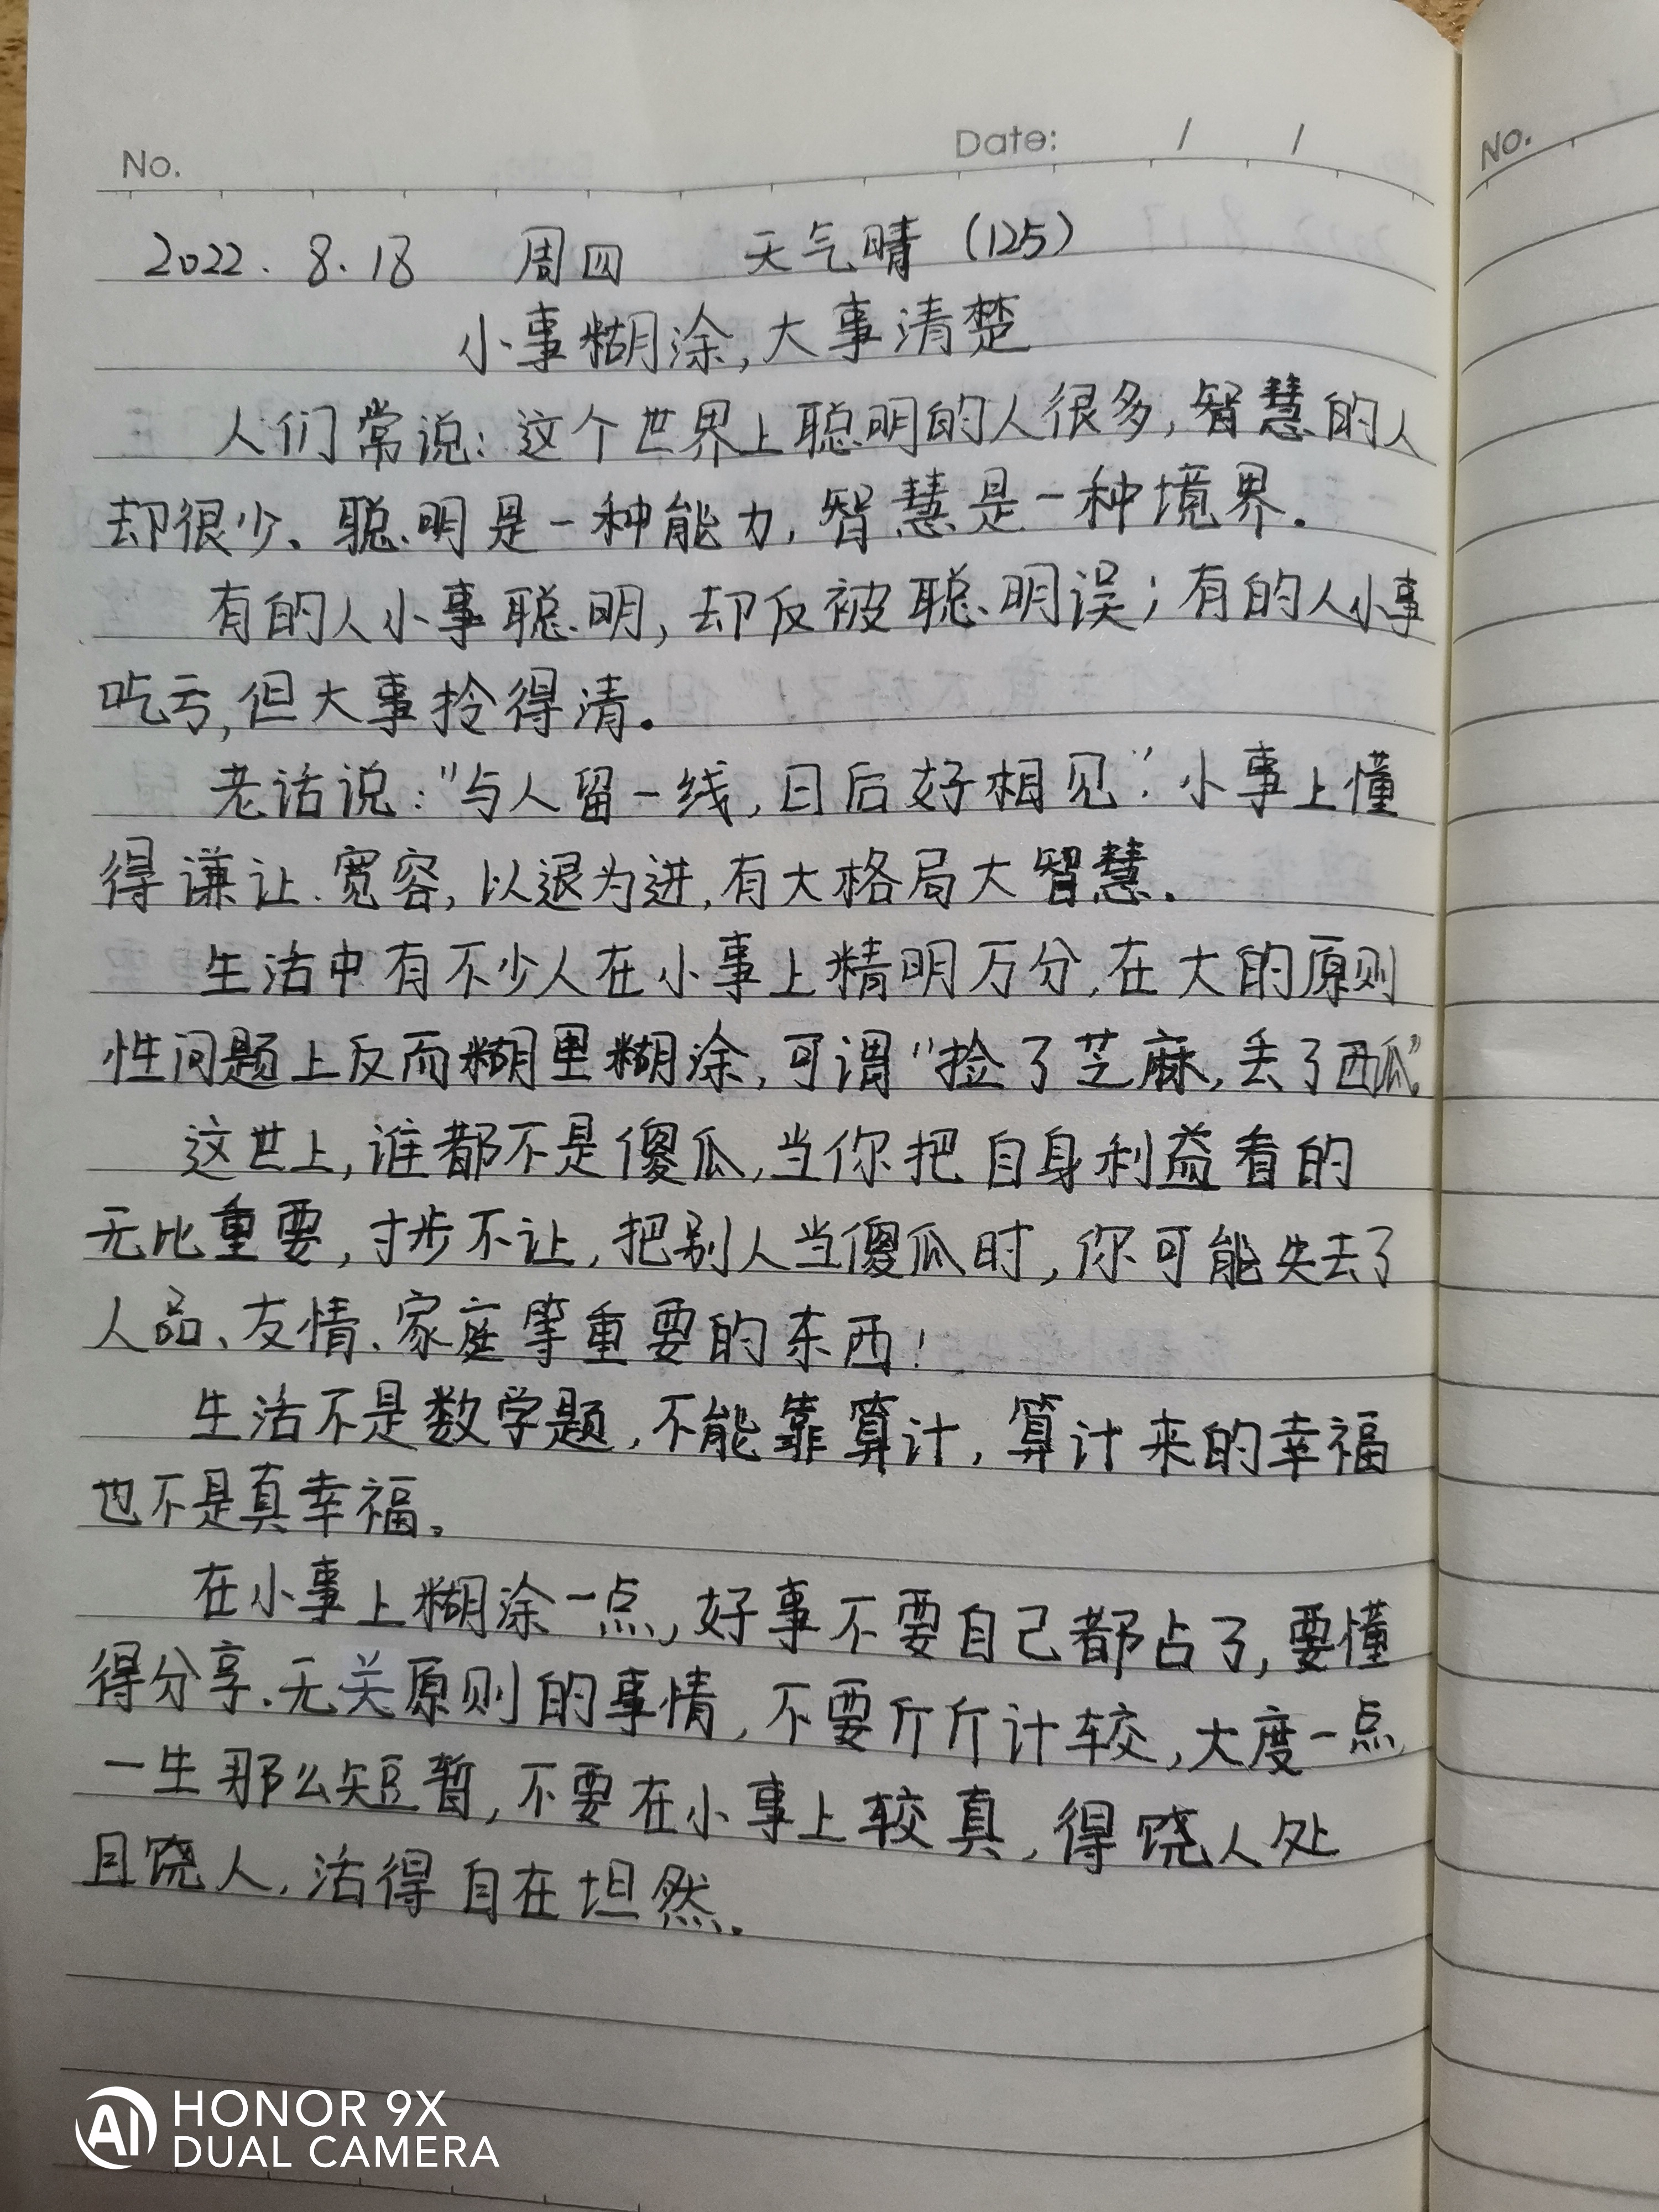 No.
Date: / /
No.
2022.8.18 周四 天气晴(125)
小事糊涂,大事清楚
人们常说:这个世界上聪明的人很多,智慧的人
却很少、聪明是一种能力,智慧是一种境界.
有的人小事聪明,却反被聪明误;有的人小事
吃亏,但大事拎得清.
老话说:"与人留一线,日后好相见".小事上懂
得谦让、宽容,以退为进,有大格局大智慧.
生活中有不少人在小事上精明万分,在大的原则
性问题上反而糊里糊涂,可谓"捡了芝麻,丢了西瓜".
这世上,谁都不是傻瓜,当你把自身利益看的
无比重要,寸步不让,把别人当傻瓜时,你可能失去了
人品、友情、家庭等重要的东西!
生活不是数学题,不能靠算计,算计来的幸福
也不是真幸福。
在小事上糊涂一点,好事不要自己都占了,要懂
得分享.无关原则的事情,不要斤斤计较,大度一点,
一生那么短暂,不要在小事上较真,得饶人处
且饶人,活得自在坦然.
AI HONOR 9X
DUAL CAMERA